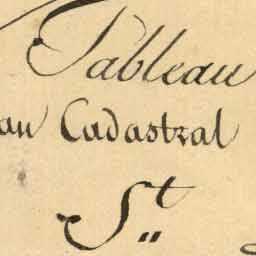 Tableau
au Cadastral
St